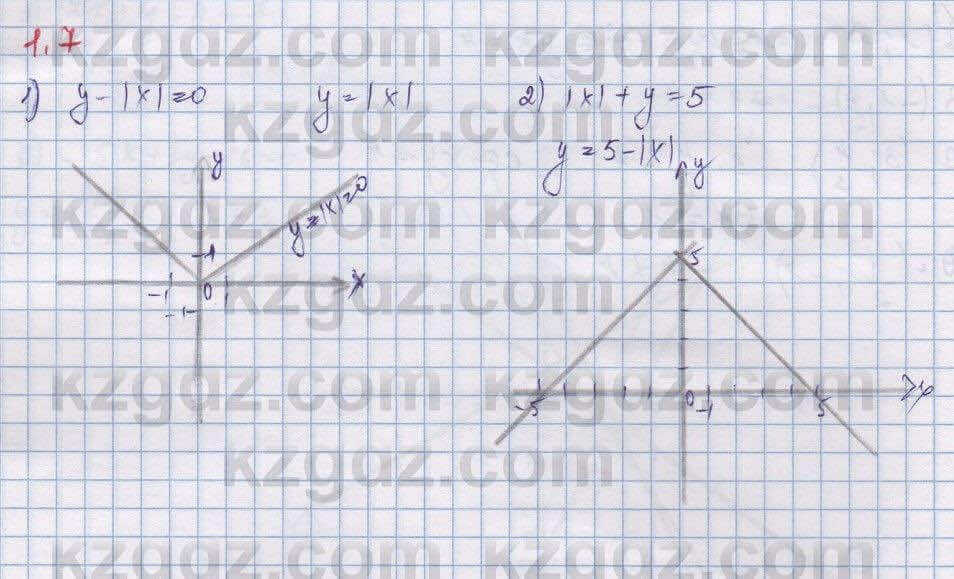 1.7
1) y - |x| = 0
y = |x|
2) |x| + y = 5
y = 5 - |x|
y
y = |x| = 0
1
-1
0
1
x
-1
y
5
-5
0
-1
5
x
kzgdz.com kzgdz.com
kzgdz.com
kzgdz.com kzgdz.com
kzgdz.com
kzgdz.com kzgdz.com
kzgdz.com
kzgdz.com kzgdz.com